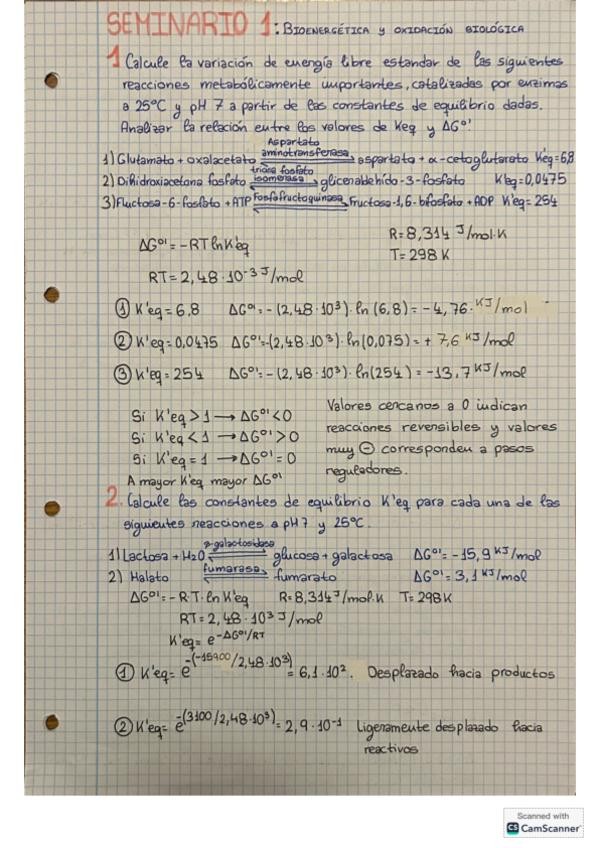 SEMINARIO 1: BIOENERGÉTICA Y OXIDACIÓN BIOLÓGICA
1 Calcule la variación de energía libre estandar de las siguientes
reacciones metabólicamente importantes, catalizadas por enzimas
a 25°C y pH 7 a partir de las constantes de equilibrio dadas.
Analizar la relación entre los valores de Keq y ΔG°'
Aspartato
aminotransferasa
1) Glutamato + oxalacetato ⇌ aspartato + α-cetoglutarato K'eq=6,8
triosa fosfato
isomerasa
2) Dihidroxiacetona fosfato ⇌ glicenaldehído-3-fosfato K'eq=0,0475
Fosfofructoquinasa
3) Fructosa-6-fosfato + ATP ⇌ Fructosa-1,6-bifosfato + ADP K'eq=254
ΔG°' = -RT ln K'eq R=8,314 J/mol·K
T=298 K
RT=2,48·10-3 J/mol
① K'eq=6,8 ΔG°'=-(2,48·10³)·ln(6,8)=-4,76·KJ/mol
② K'eq=0,0475 ΔG°'=-(2,48·10³)·ln(0,075)=+7,6 KJ/mol
③ K'eq=254 ΔG°'=-(2,48·10³)·ln(254)=-13,7 KJ/mol
Si K'eq>1 → ΔG°'<0 Valores cercanos a 0 indican
Si K'eq<1 → ΔG°'>0 reacciones reversibles y valores
Si K'eq=1 → ΔG°'=0 muy ⊖ corresponden a pasos
A mayor K'eq mayor ΔG°' reguladores.
2. Calcule las constantes de equilibrio K'eq para cada una de las
siguientes reacciones a pH7 y 25°C.
β-galactosidasa
1) Lactosa + H2O ⇌ glucosa + galactosa ΔG°'=-15,9 KJ/mol
fumarasa
2) Malato ⇌ fumarato ΔG°'=3,1 KJ/mol
ΔG°'=-R·T·ln K'eq R=8,314 J/mol·K T=298K
RT=2,48·10³ J/mol
K'eq=e-ΔG°'/RT
① K'eq= e-(-15900/2,48·10³) = 6,1·10². Desplazado hacia productos
② K'eq= e-(3100/2,48·10³) = 2,9·10-1 Ligeramente desplazado hacia
reactivos
Scanned with
CS CamScanner